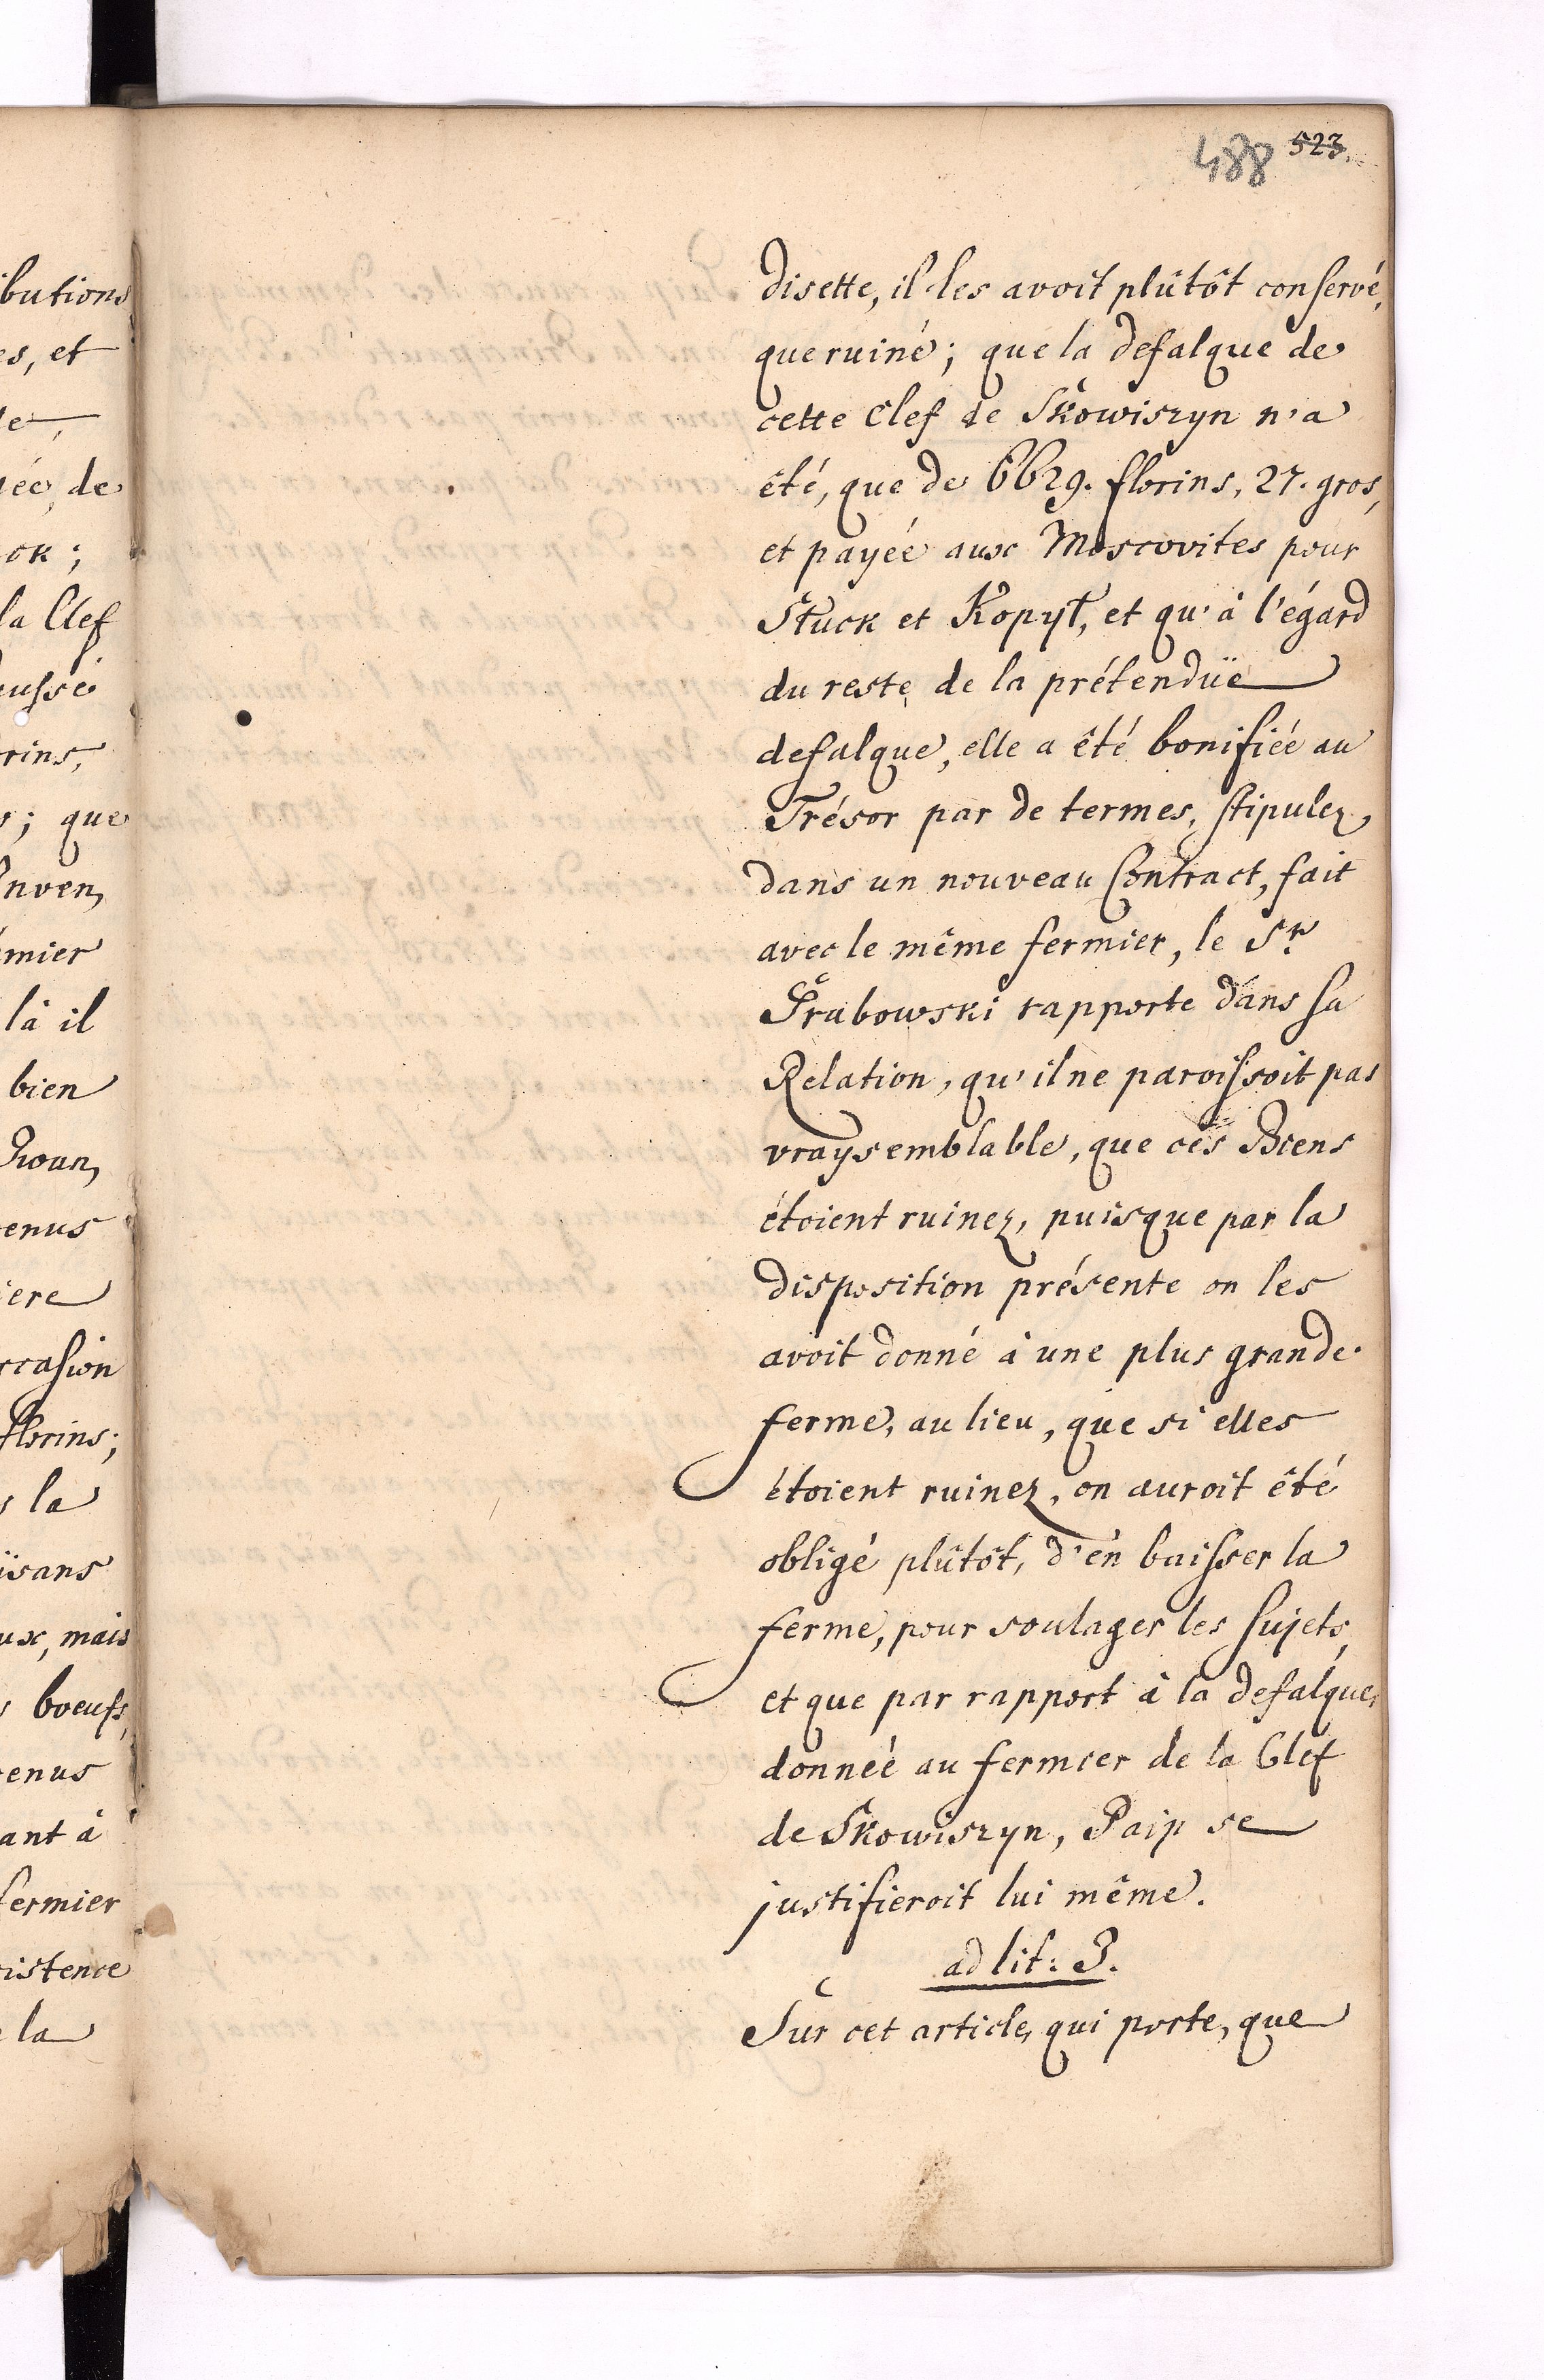 488 523.
disette, il les avoit plûtôt conservé,
que ruiné; que la defalque de
cette Clef de Skowiszyn n'a
été, que de 6629. florins, 27. gros,
et payée aux Moscovites pour
Stuck et Kopyt, et qu'à l'égard
du reste de la prétendüe
defalque, elle a êté bonifiée au
Trésor par de termes, stipulez
dans un nouveau Contract, fait
avec le même fermier, le Sr.
Grabowski rapporte dans sa
Relation, qu'il ne paroissoit pas
vraysemblable, que ces Biens
étoient ruinez, puisque par la
disposition présente on les
avoit donné à une plus grande
ferme, au lieu, que si elles
étoient ruinez, on auroit êté
obligé plûtôt, d'en baisser la
ferme, pour soulager les Sujets,
et que par rapport à la defalque,
donnée au fermier de la Clef
de Skowiszyn, Paip se
justifieroit lui même.
ad lit: J.
Sur cet article, qui porte, que
ibutions
es, et
ée, de
ok;
la Clef
eussé
rins,
; que
Inven,
rmier
là il
bien
enus
iere
ccasion
florins;
la
isans
ux, mais
boeufs,
enus
ant à
fermier
istence
la